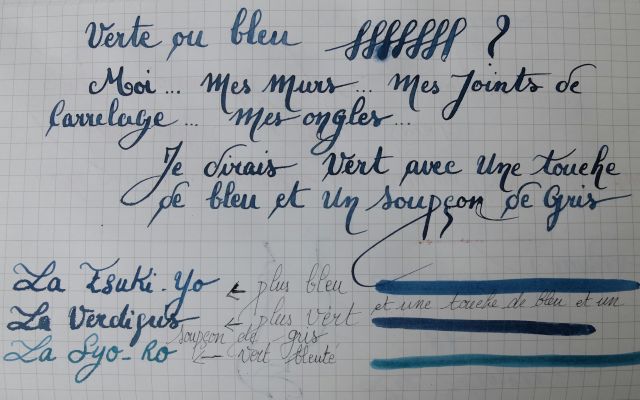 Verte ou bleu ?
Moi... mes murs... mes joints de
Carrelage... mes ongles...
Je dirais Vert avec Une touche
de bleu et un soupçon de Gris
La Tsuki-Yo ← plus bleu
et une touche de bleu et un
La Verdigris ← plus vert
soupçon de gris
La Syo-Ro ← vert bleuté